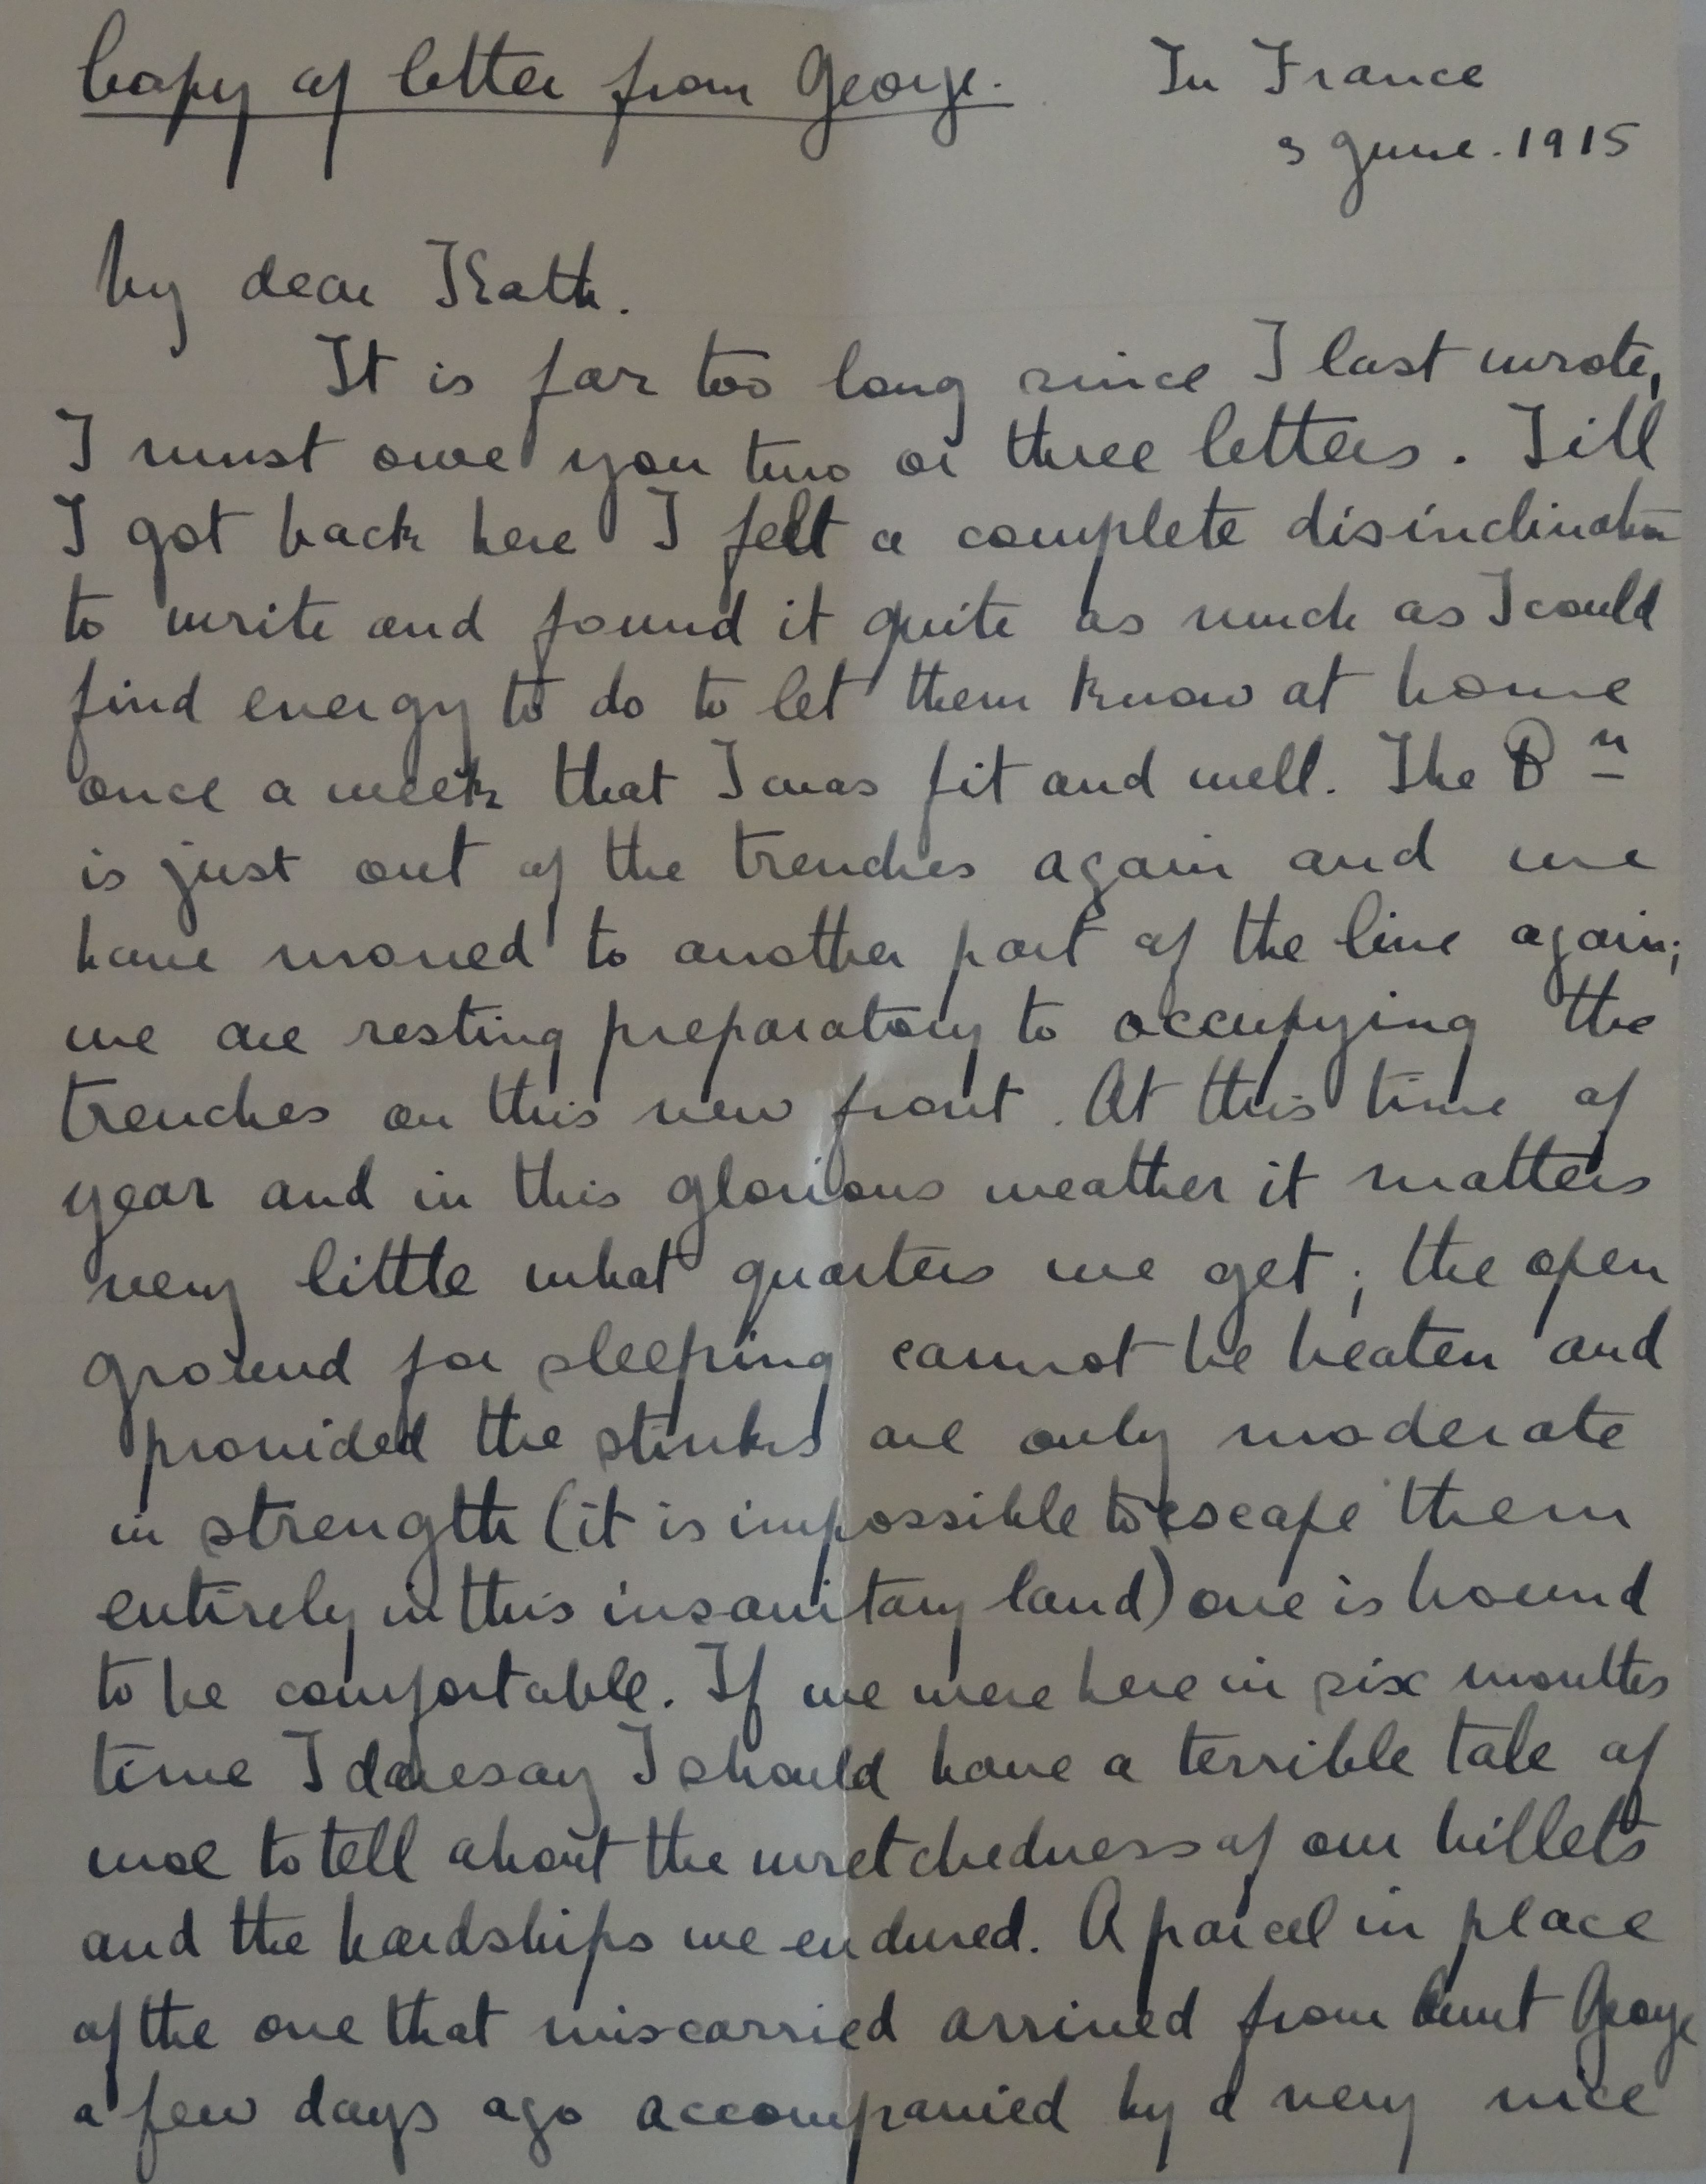 Copy of letter from George. In France
3 June. 1915
My dear Kath.
It is far too long since I last wrote,
I must owe you two or three letters. Till
I got back here I felt a complete disinclination
to write and found it quite as much as I could
find energy to do to let them know at home
once a week that I was fit and well. The Bn
is just out of the trenches again and we
have moved to another part of the line again;
we are resting preparatory to occupying the
trenches on this new front. At this time of
year and in this glorious weather it matters
very little what quarters we get; the open
ground for sleeping cannot be beaten and
provided the stinks are only moderate
in strength (it is impossible to escape them
entirely in this insanitary land) one is bound
to be comfortable. If we were here in six months
time I daresay I should have a terrible tale of
woe to tell about the wretchedness of our billets
and the hardships we endured. A parcel in place
of the one that miscarried arrived from Aunt George
a few days ago accompanied by a very nice